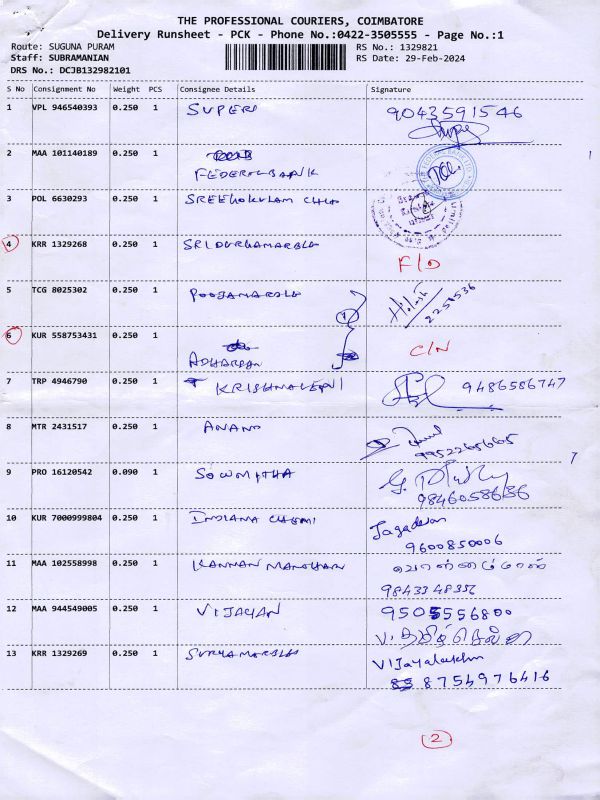 THE PROFESSIONAL COURIERS, COIMBATORE
Delivery Runsheet - PCK - Phone No.:0422-3505555 - Page No.:1
Route: SUGUNA PURAM RS No.: 1329821
Staff: SUBRAMANIAN RS Date: 29-Feb-2024
DRS No.: DCJB132982101
S No Consignment No Weight PCS Consignee Details Signature
1 VPL 946540393 0.250 1 SUPER 9043591546
2 MAA 101140189 0.250 1
FEDERAL BANK
3 POL 6630293 0.250 1 SREEGOKULAM
4 KRR 1329268 0.250 1 SRIDURGAMARBLS
F/D
5 TCG 8025302 0.250 1 POOJAMARBLS
2258536
6 KUR 558753431 0.250 1 C/N
ADHARPAN
7 TRP 4946790 0.250 1 KRISHNAVENI 9486586747
8 MTR 2431517 0.250 1 ANAND
9952265665
9 PRO 16120542 0.090 1 SOWMITHA
9846058636
10 KUR 7000999804 0.250 1 INDIANA
9600850006
11 MAA 102558998 0.250 1 KANNAN MANOHAR
9843348356
12 MAA 944549005 0.250 1 VIJAYAN 9505556800
13 KRR 1329269 0.250 1 SURYAMARBLS Vijayalakshmi
8754976416
2